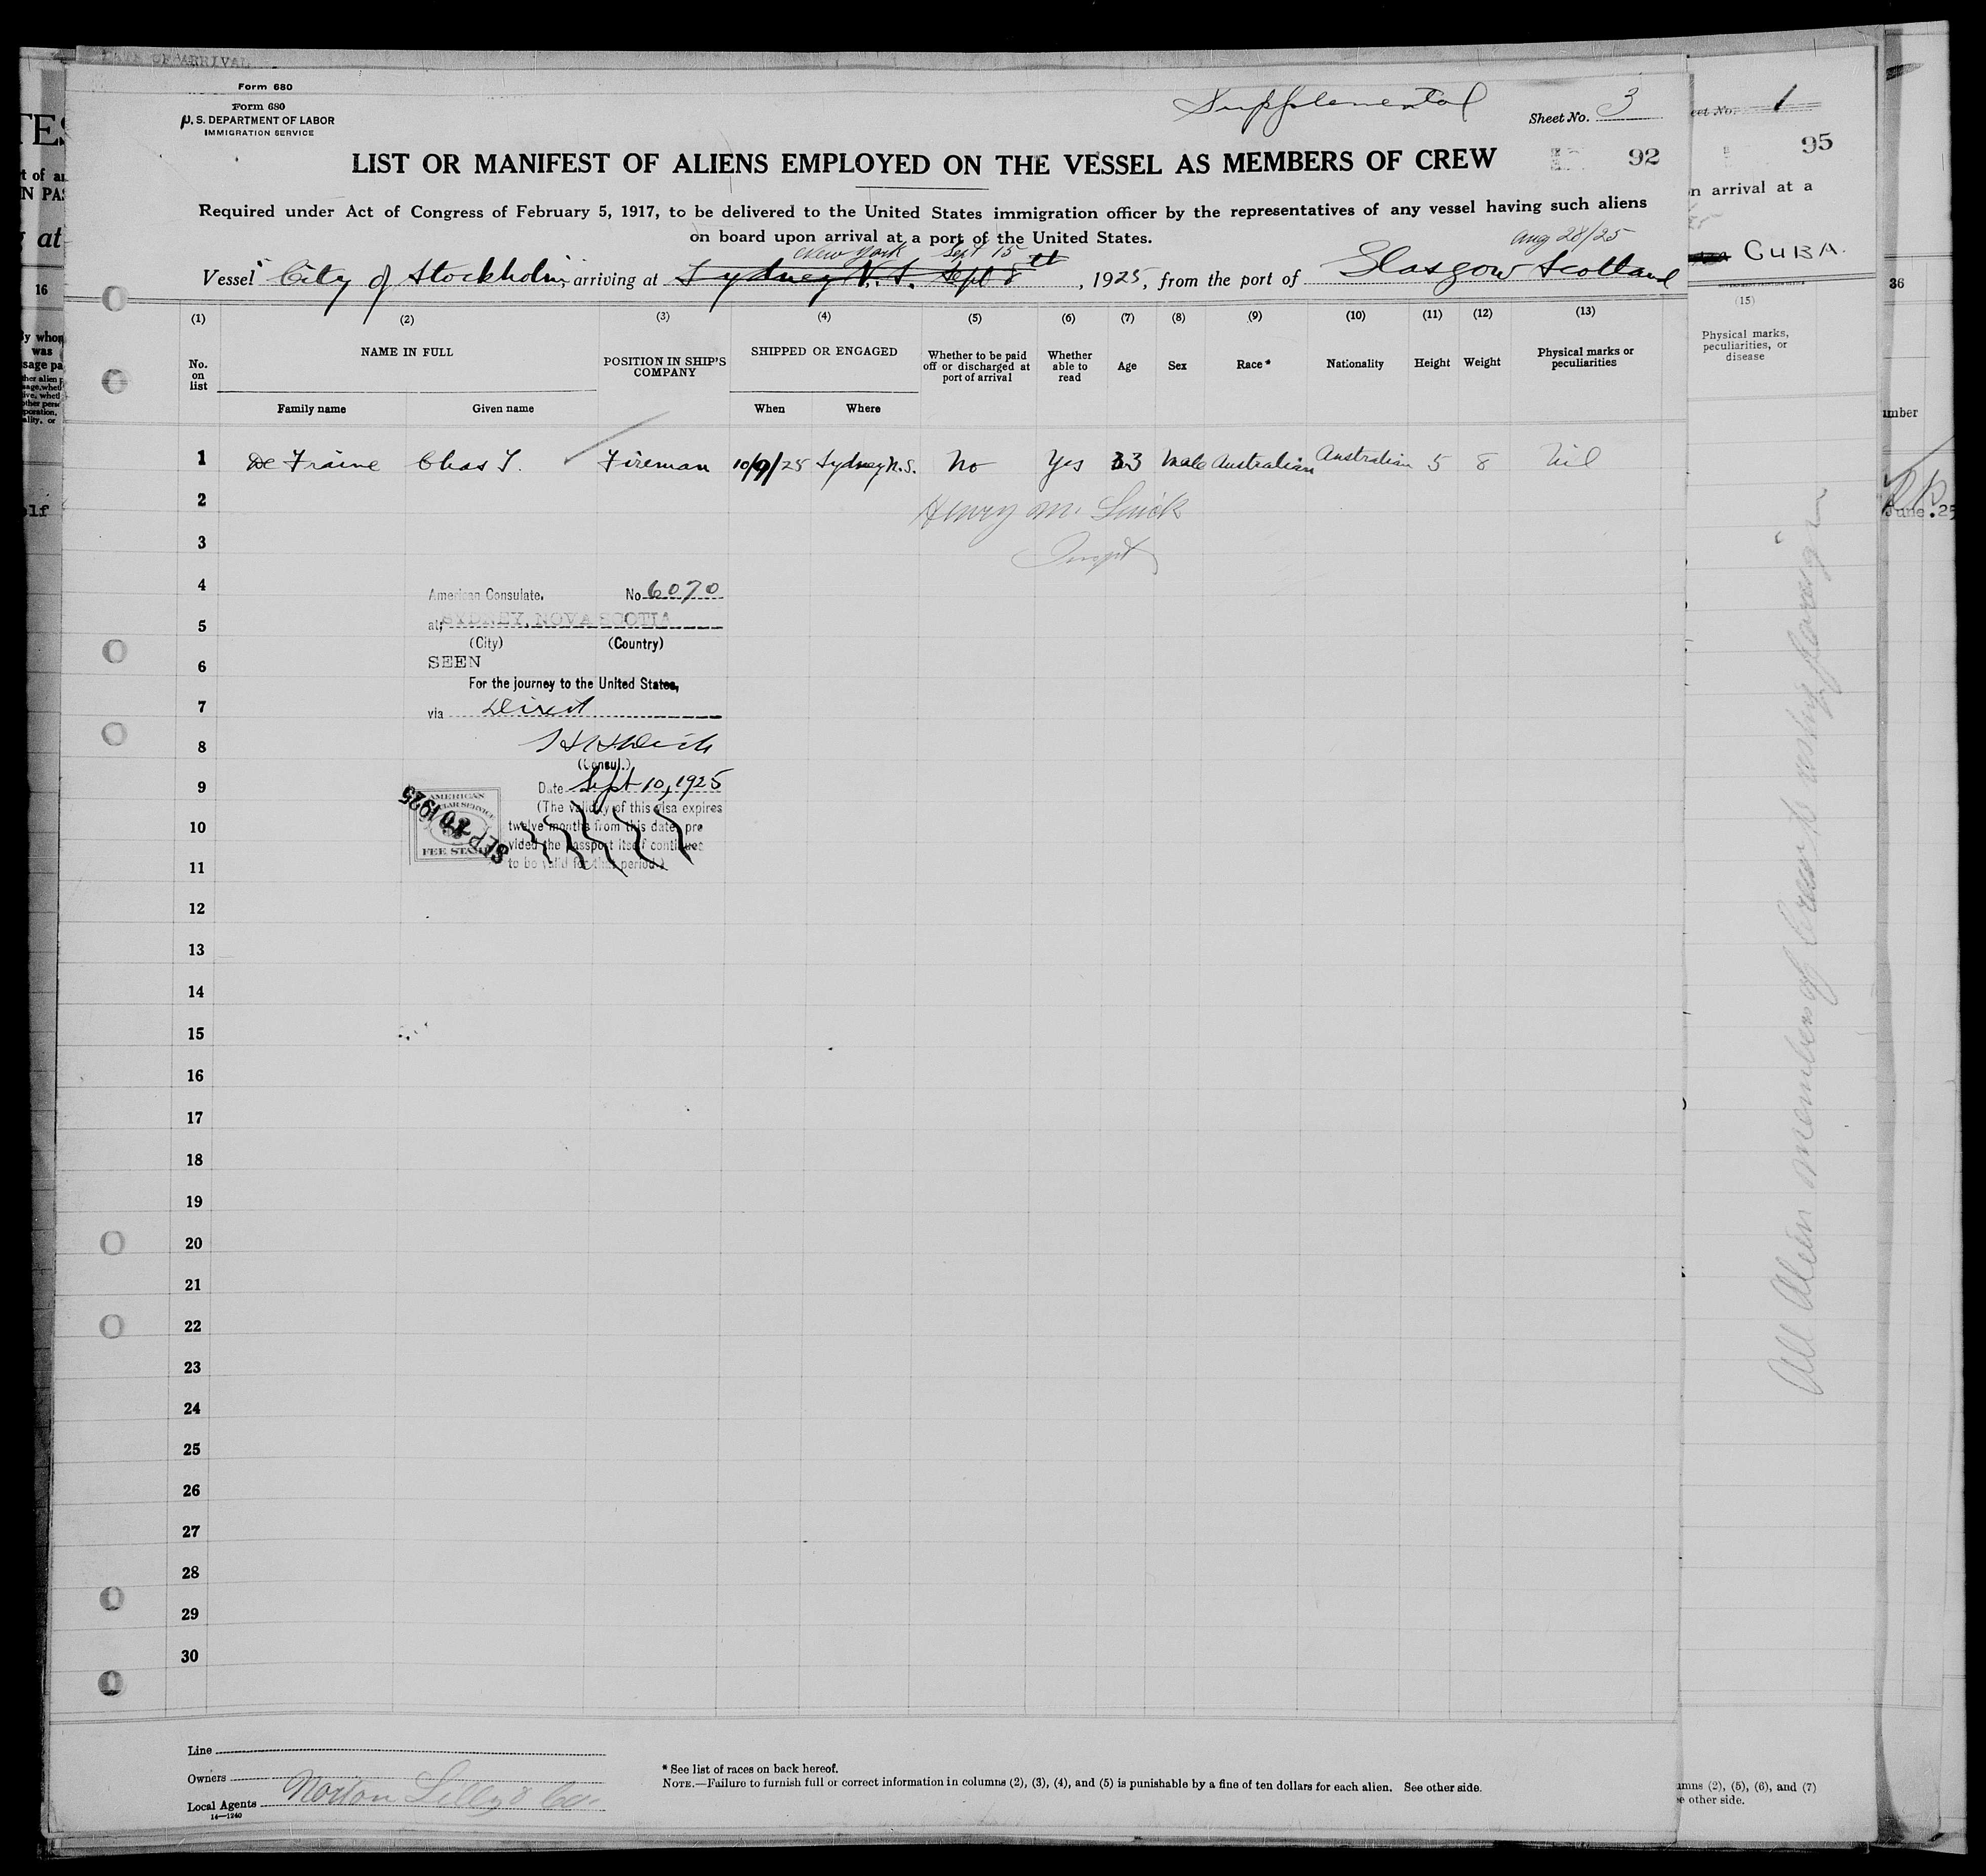 DATE OF ARRIVAL
Form 680
Form 680
U. S. DEPARTMENT OF LABOR
IMMIGRATION SERVICE
Supplemental
Sheet No. 3
92
LIST OR MANIFEST OF ALIENS EMPLOYED ON THE VESSEL AS MEMBERS OF CREW
Required under Act of Congress of February 5, 1917, to be delivered to the United States immigration officer by the representatives of any vessel having such aliens
on board upon arrival at a port of the United States.
New York Sept 15 Aug 28/25
Vessel City of Stockholm, arriving at Sydney N.S. Sept 8th, 1925, from the port of Glasgow Scotland
(1) (2) (3) (4) (5) (6) (7) (8) (9) (10) (11) (12) (13)
No. on list
NAME IN FULL
Family name
Given name
POSITION IN SHIP'S COMPANY
SHIPPED OR ENGAGED
When
Where
Whether to be paid off or discharged at port of arrival
Whether able to read
Age
Sex
Race *
Nationality
Height
Weight
Physical marks or peculiarities
1 De Fraine Chas T. Fireman 10/9/25 Sydney N.S. No Yes 33 Male Australian Australian 5 8 Nil
2 Henry M.
3
4
American Consulate, No 6070
5
at SYDNEY, NOVA SCOTIA
(City) (Country)
6
SEEN
For the journey to the United States,
7
via Direct
8
(Consul.)
9
Date Sept 10, 1925
(The validity of this visa expires
10
twelve months from this date, pro
vided the passport itself continues
11
to be valid for that period.)
AMERICAN
CONSULAR SERVICE
FEE STAMP
SEP 10 1925
12
13
14
15
16
17
18
19
20
21
22
23
24
25
26
27
28
29
30
Line
Owners
Local Agents Norton Lilly & Co.
14—1240
* See list of races on back hereof.
NOTE.—Failure to furnish full or correct information in columns (2), (3), (4), and (5) is punishable by a fine of ten dollars for each alien. See other side.
eet No. 1
95
n arrival at a
CUBA.
(15)
Physical marks,
peculiarities, or
disease
umns (2), (5), (6), and (7)
e other side.
36
umber
June. 25
16